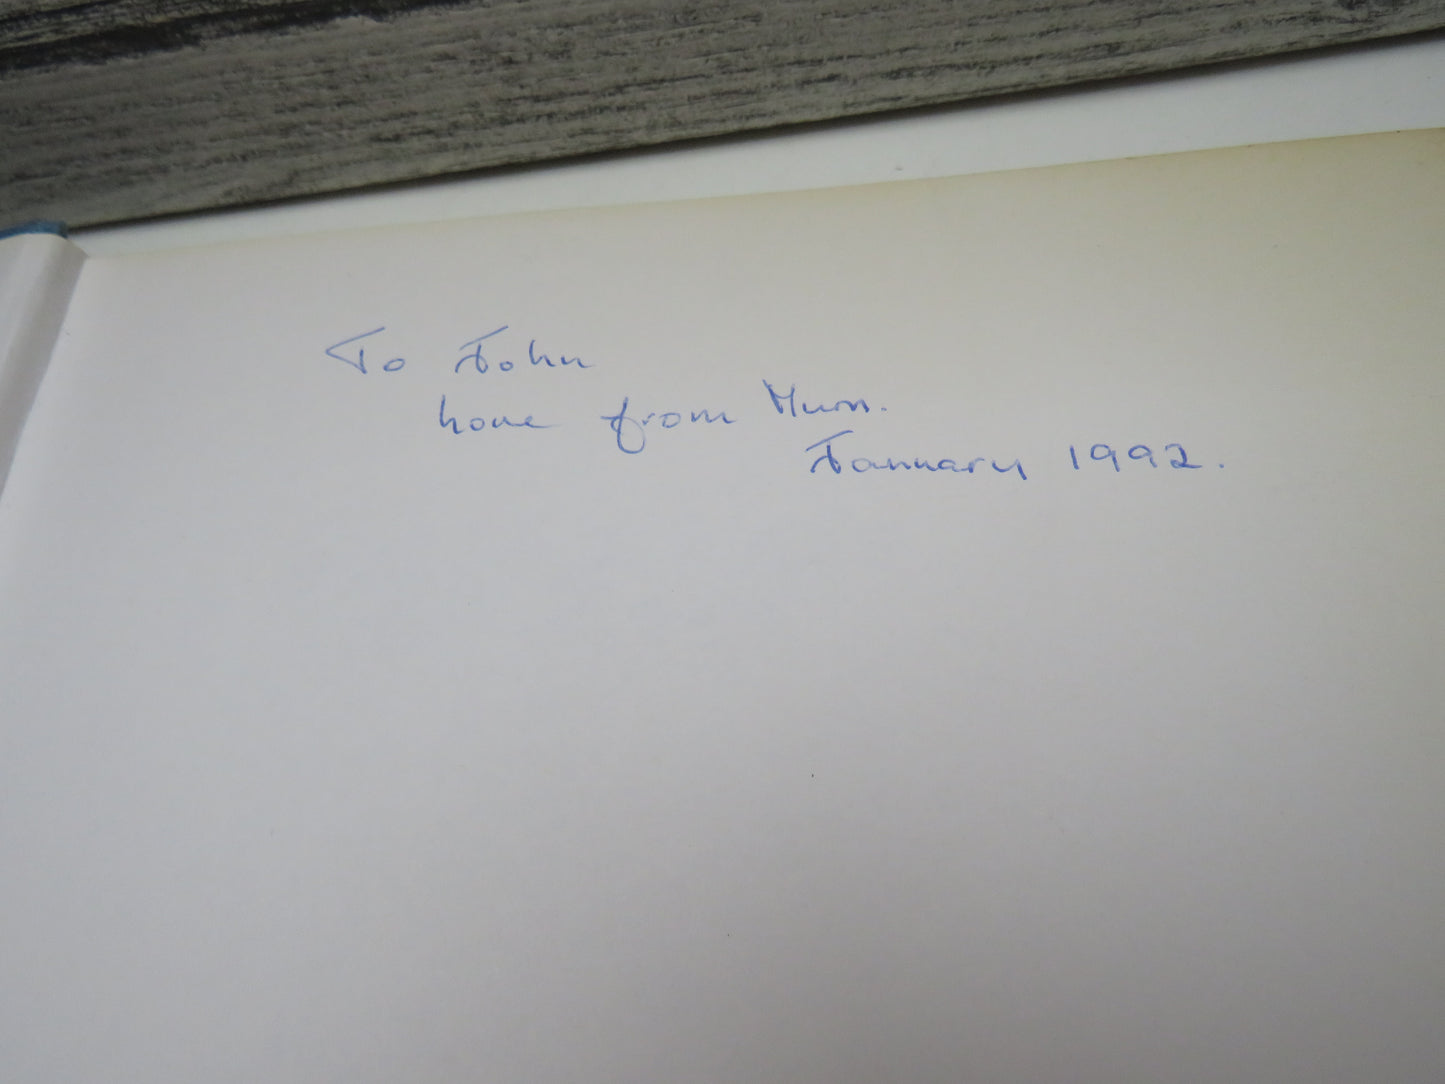 To John
love from Mum.
January 1992.